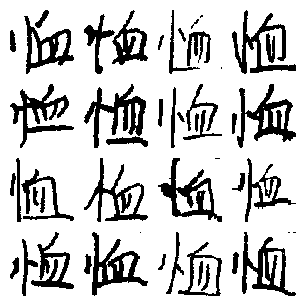 恤 恤 恤 恤
恤 恤 恤 恤
恤 恤 恤 恤
恤 恤 恤 恤